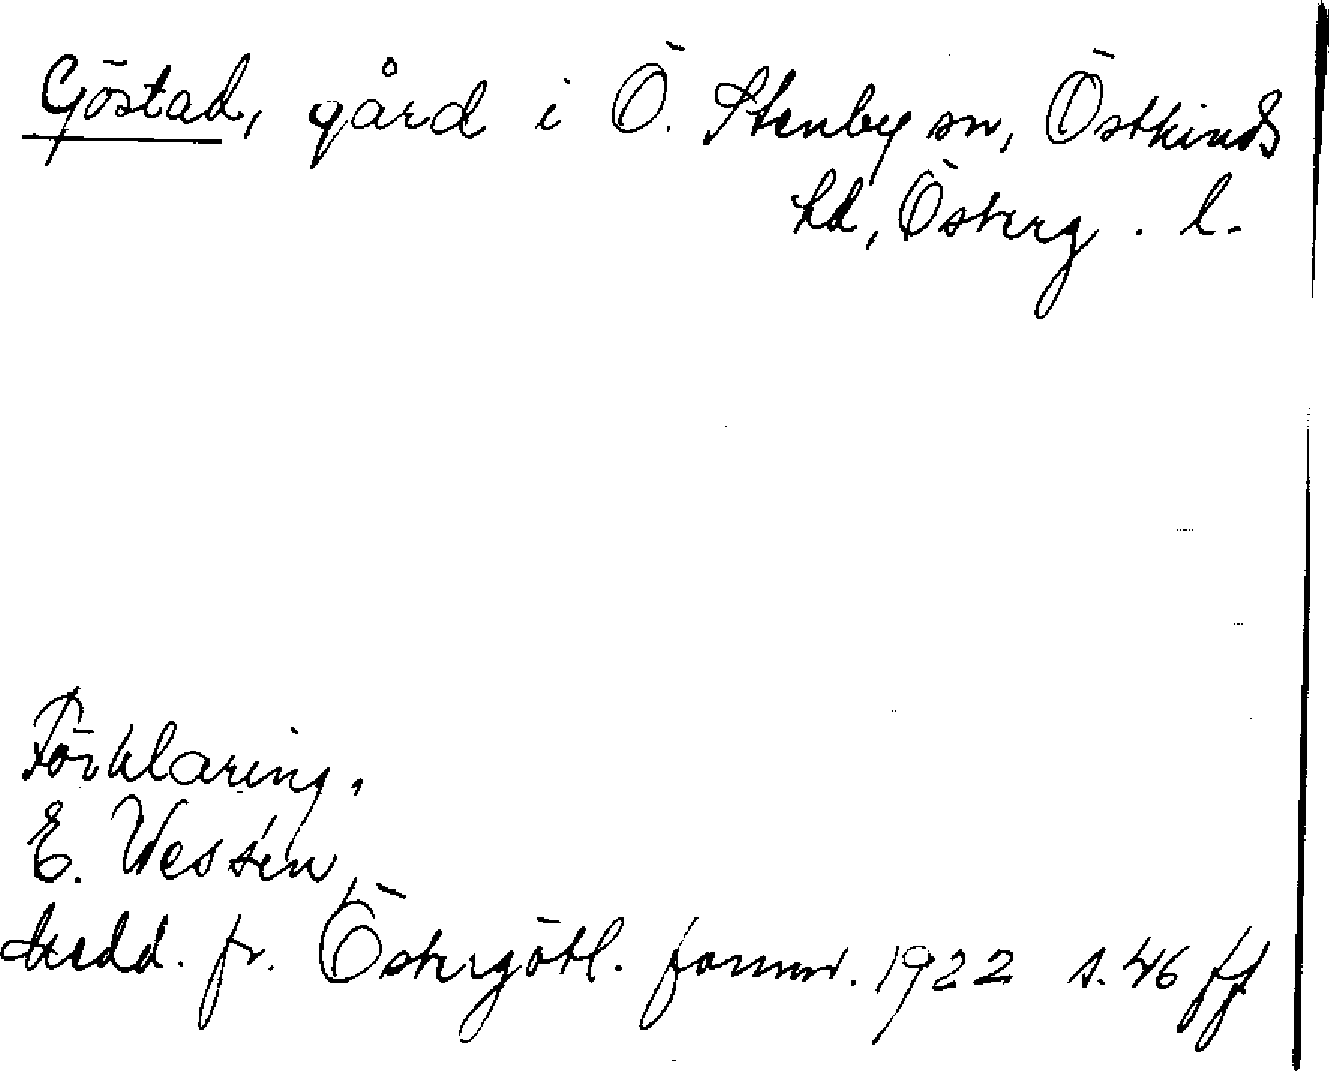 Göstad, gård i Ö. Stenby sn, Östkinds
hd, Österg. l.
Förklaring.
E. Wessén,
Medd. fr. Östergötl. fornm. 1922 s. 46 ff